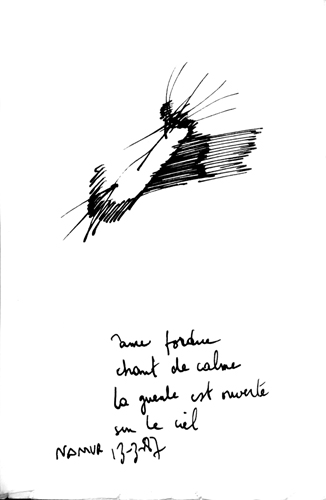 chant de calme
la gueule est ouverte
sur le ciel
NAMUR 13-3-87